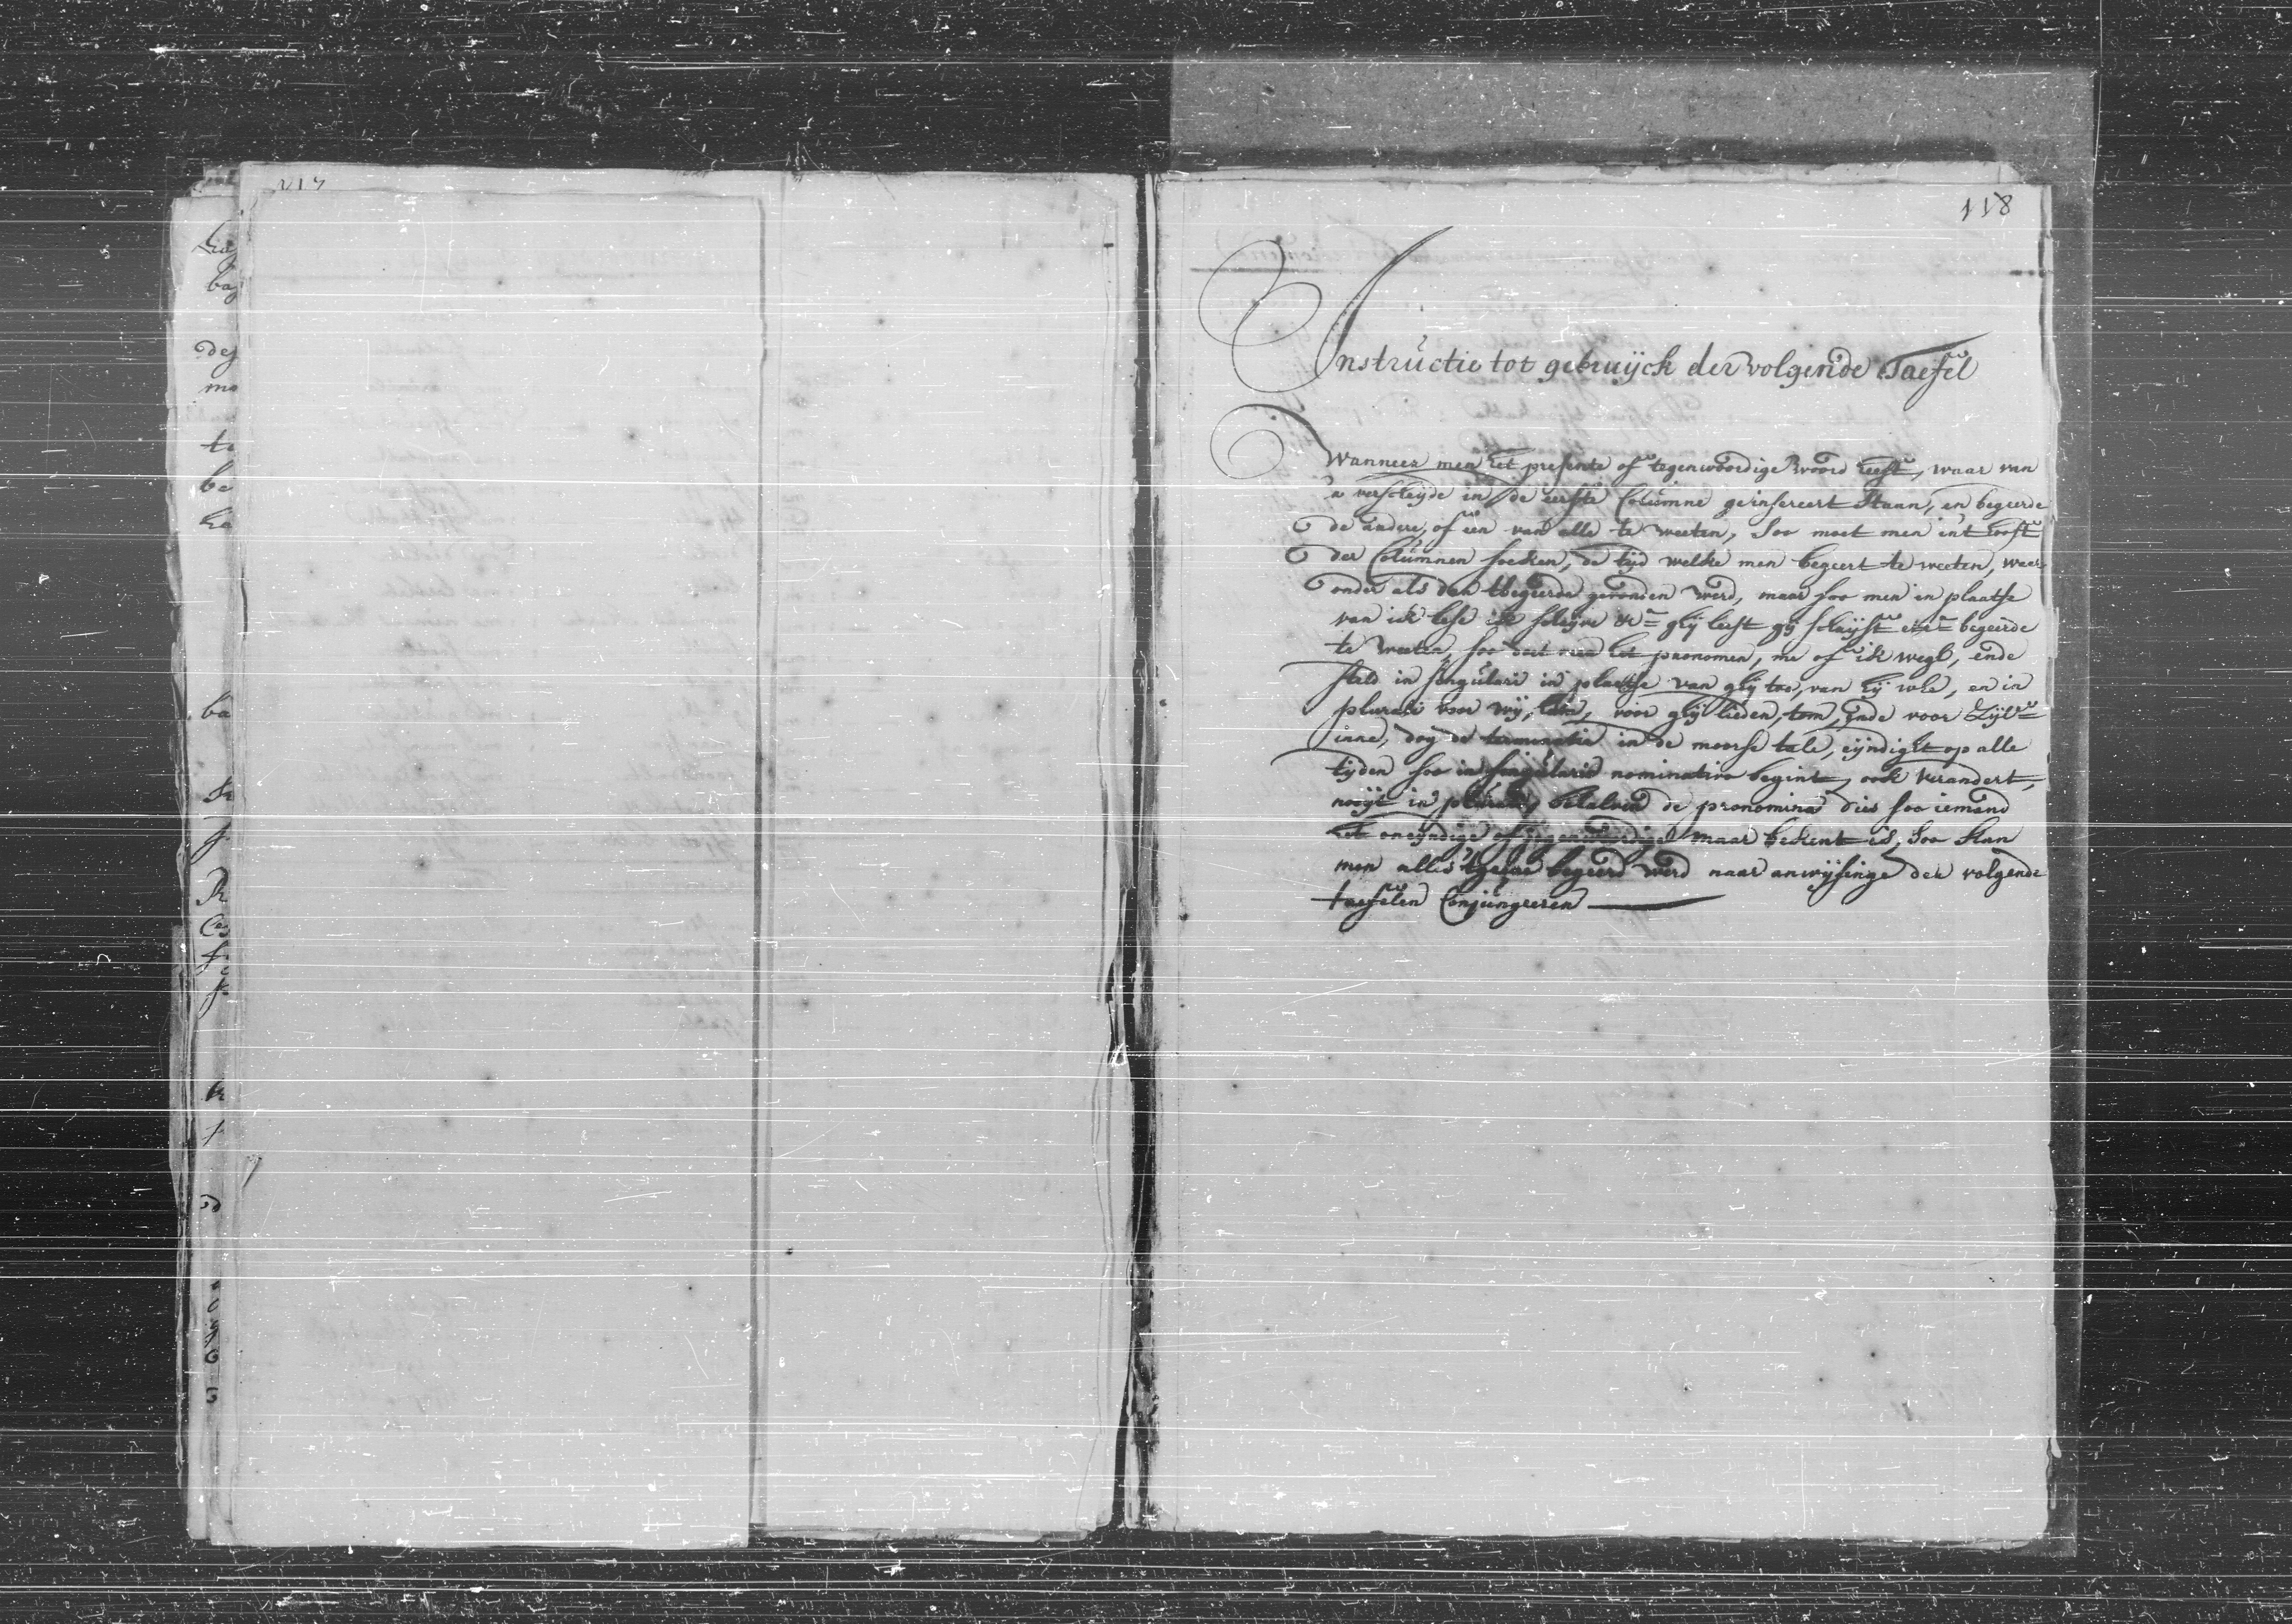 117
118
Instructie tot gebruijck der volgende Taefel
Wanneer men het presente of tegenwoordige woord heeft, waar van
'er verscheijde in de eerste Columne geinsereert staan, en begeerde
de andere, of een van alle te weeten, soo moet men int hooft
der Columnen soeken, de tijd welke men begeert te weeten, waer
onder als dan tbegeerde gevonden werd, maar soo men in plaatse
van ik lese ik schrijve &c=a ghij leest gij schrijft etc=a begeerde
te weeten, soo doet men het pronomen, me of ik wegh, ende
steld in singulari in plaetse van ghij too, van hij whe, en in
plurali voor wij, ham, voor ghij lieden, tom, ende voor zijl=n
inne, dog de terminatie in de moorse tale, eijndight op alle
tijden soo in singularis nominativo begint, ook verandert,
nooijt in pluralis behalven de pronomina dies soo iemand
het oneijndige of maar bekent is, soo kan
men alles tgeene begeerd werd naar anwijsinge der volgende
taefelen Conjungeeren